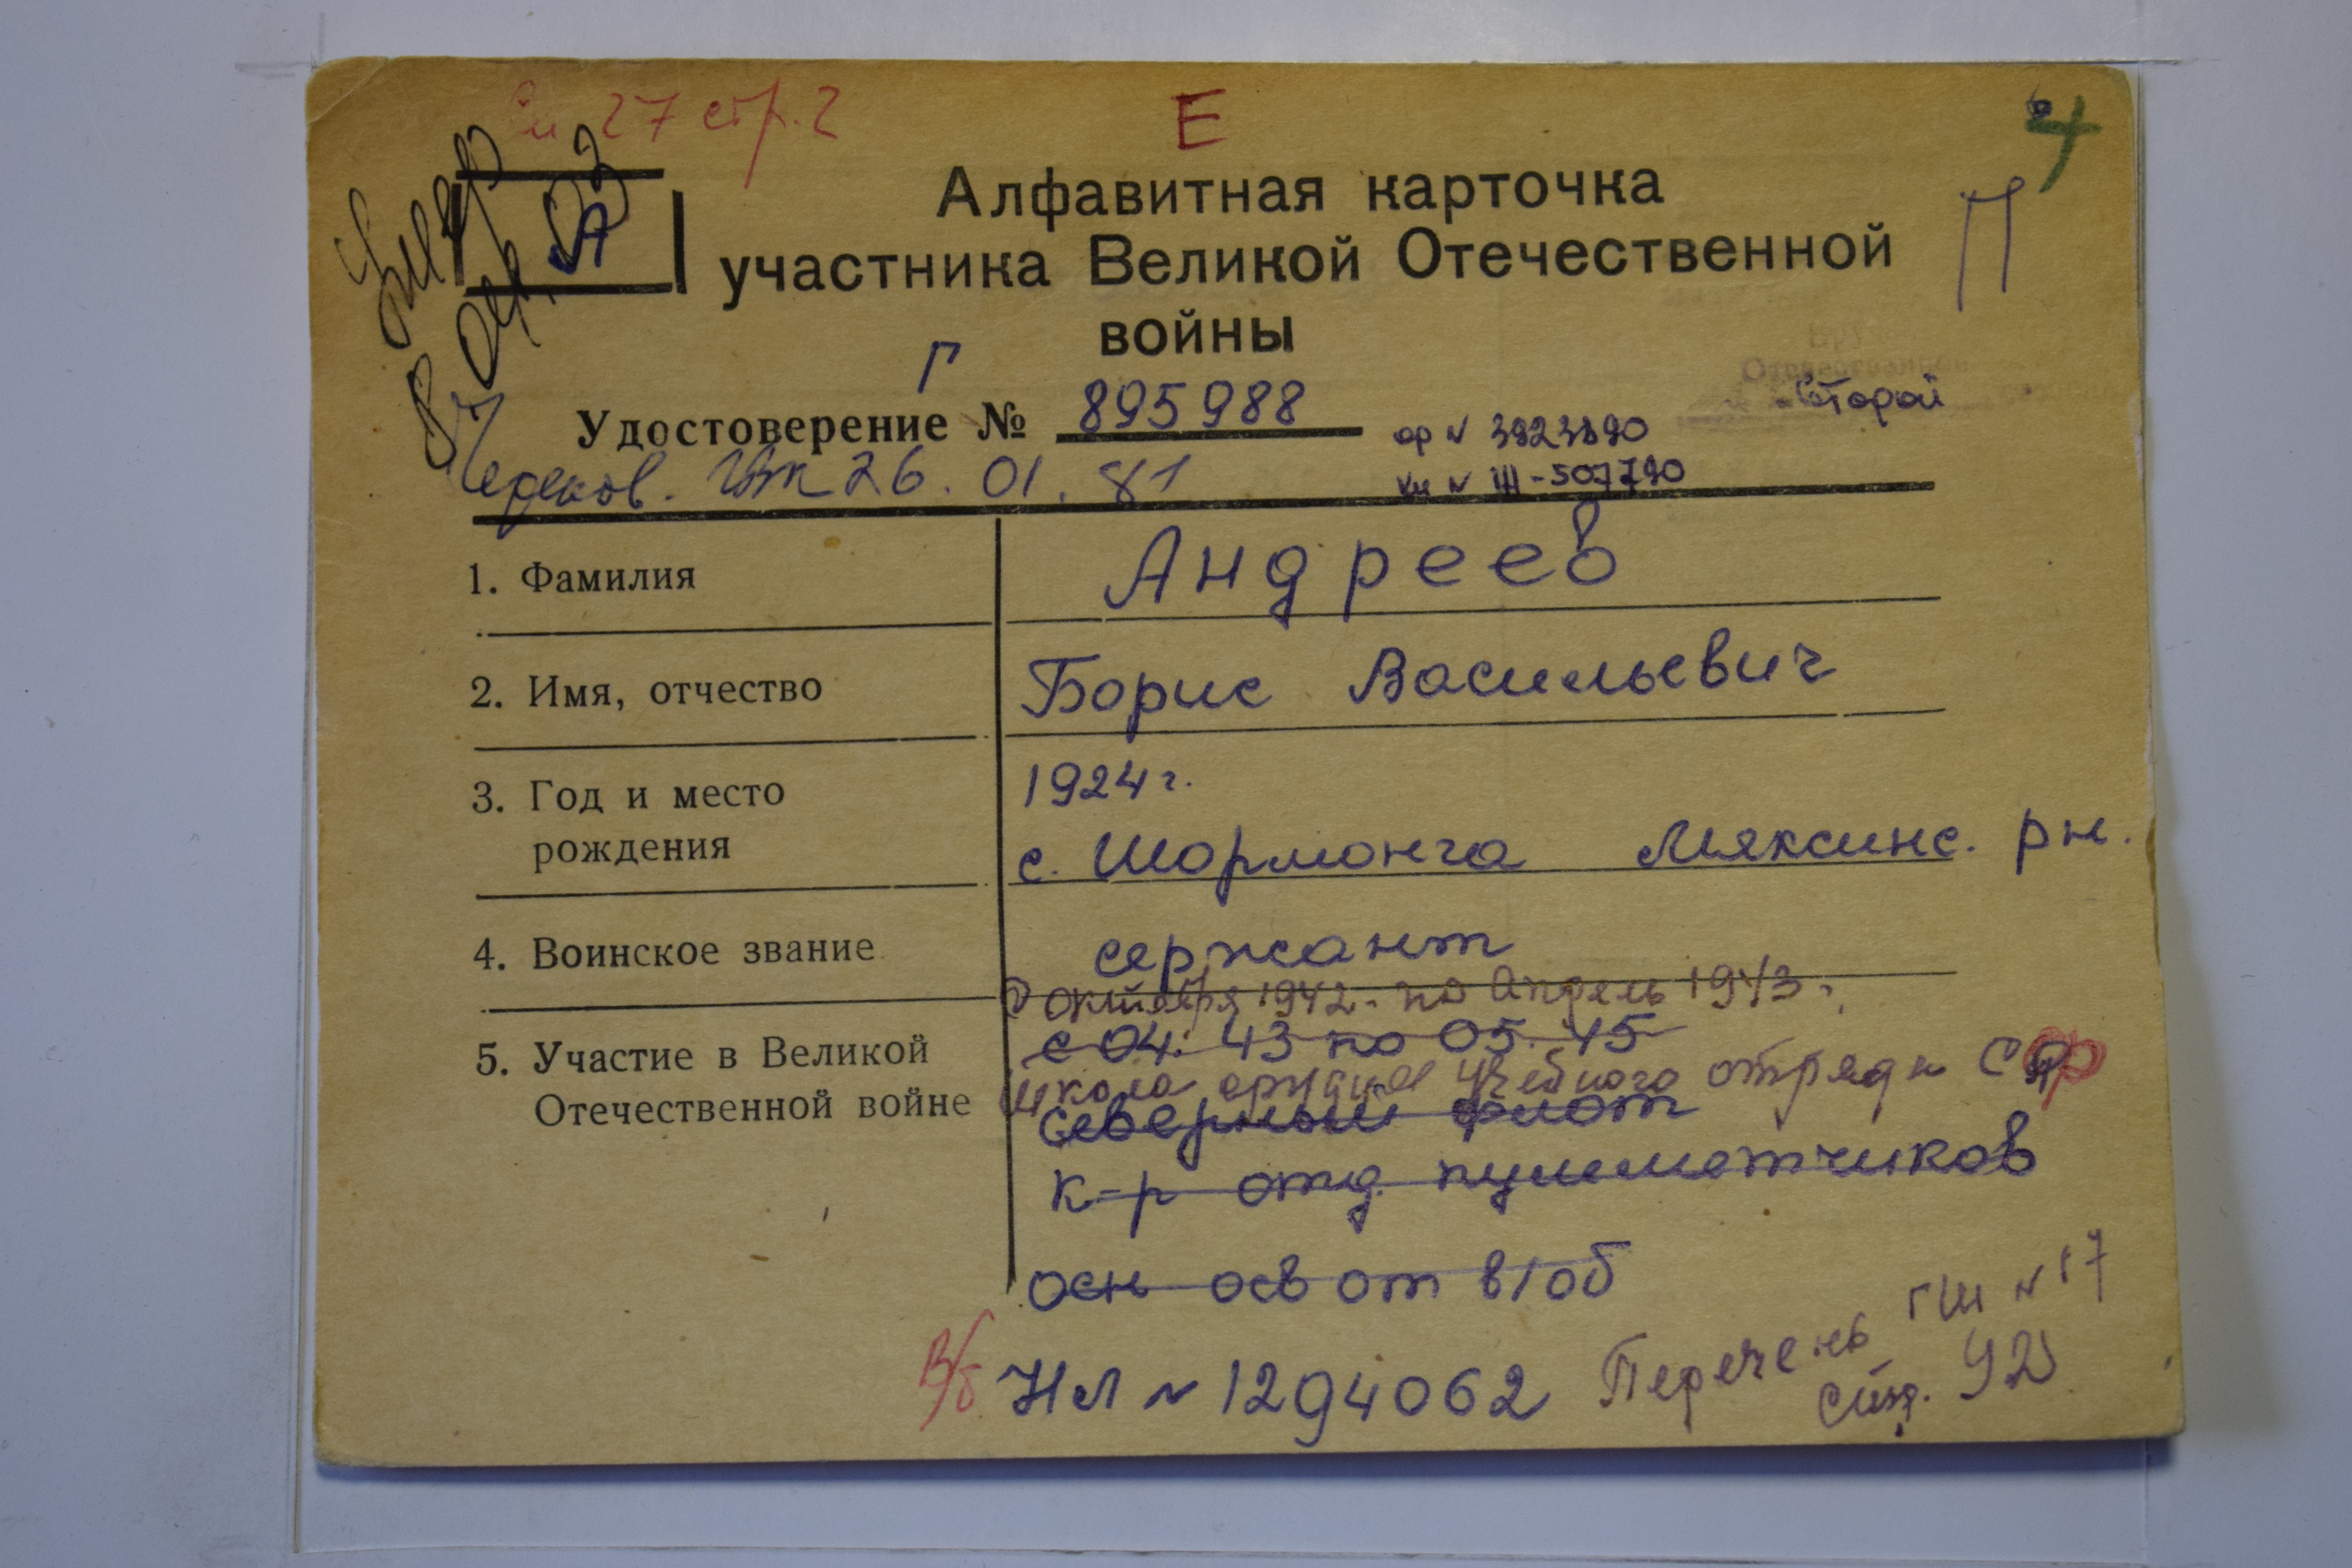 27 стр. 2
Е
П
А
Умер
Алфавитная карточка
участника Великой Отечественной
войны
Г
Удостоверение № 895988
Второй
ор № 3923890
кн № III-507790
26. 01. 81
1. Фамилия Андреев
2. Имя, отчество Борис Васильевич
3. Год и место рождения 1924 г.
с. Шормонга Мяксинс. рн.
4. Воинское звание сержант
С октября 1942 - по апрель 1943 г.
5. Участие в Великой Отечественной войне с 04. 43 по 05. 45
школа оружия учебного отряда СФ
северный флот
к-р отд. пулеметчиков
осн осв от в/об
В/б НЛ № 1294062
Перечень ГШ № 17
стр. 92